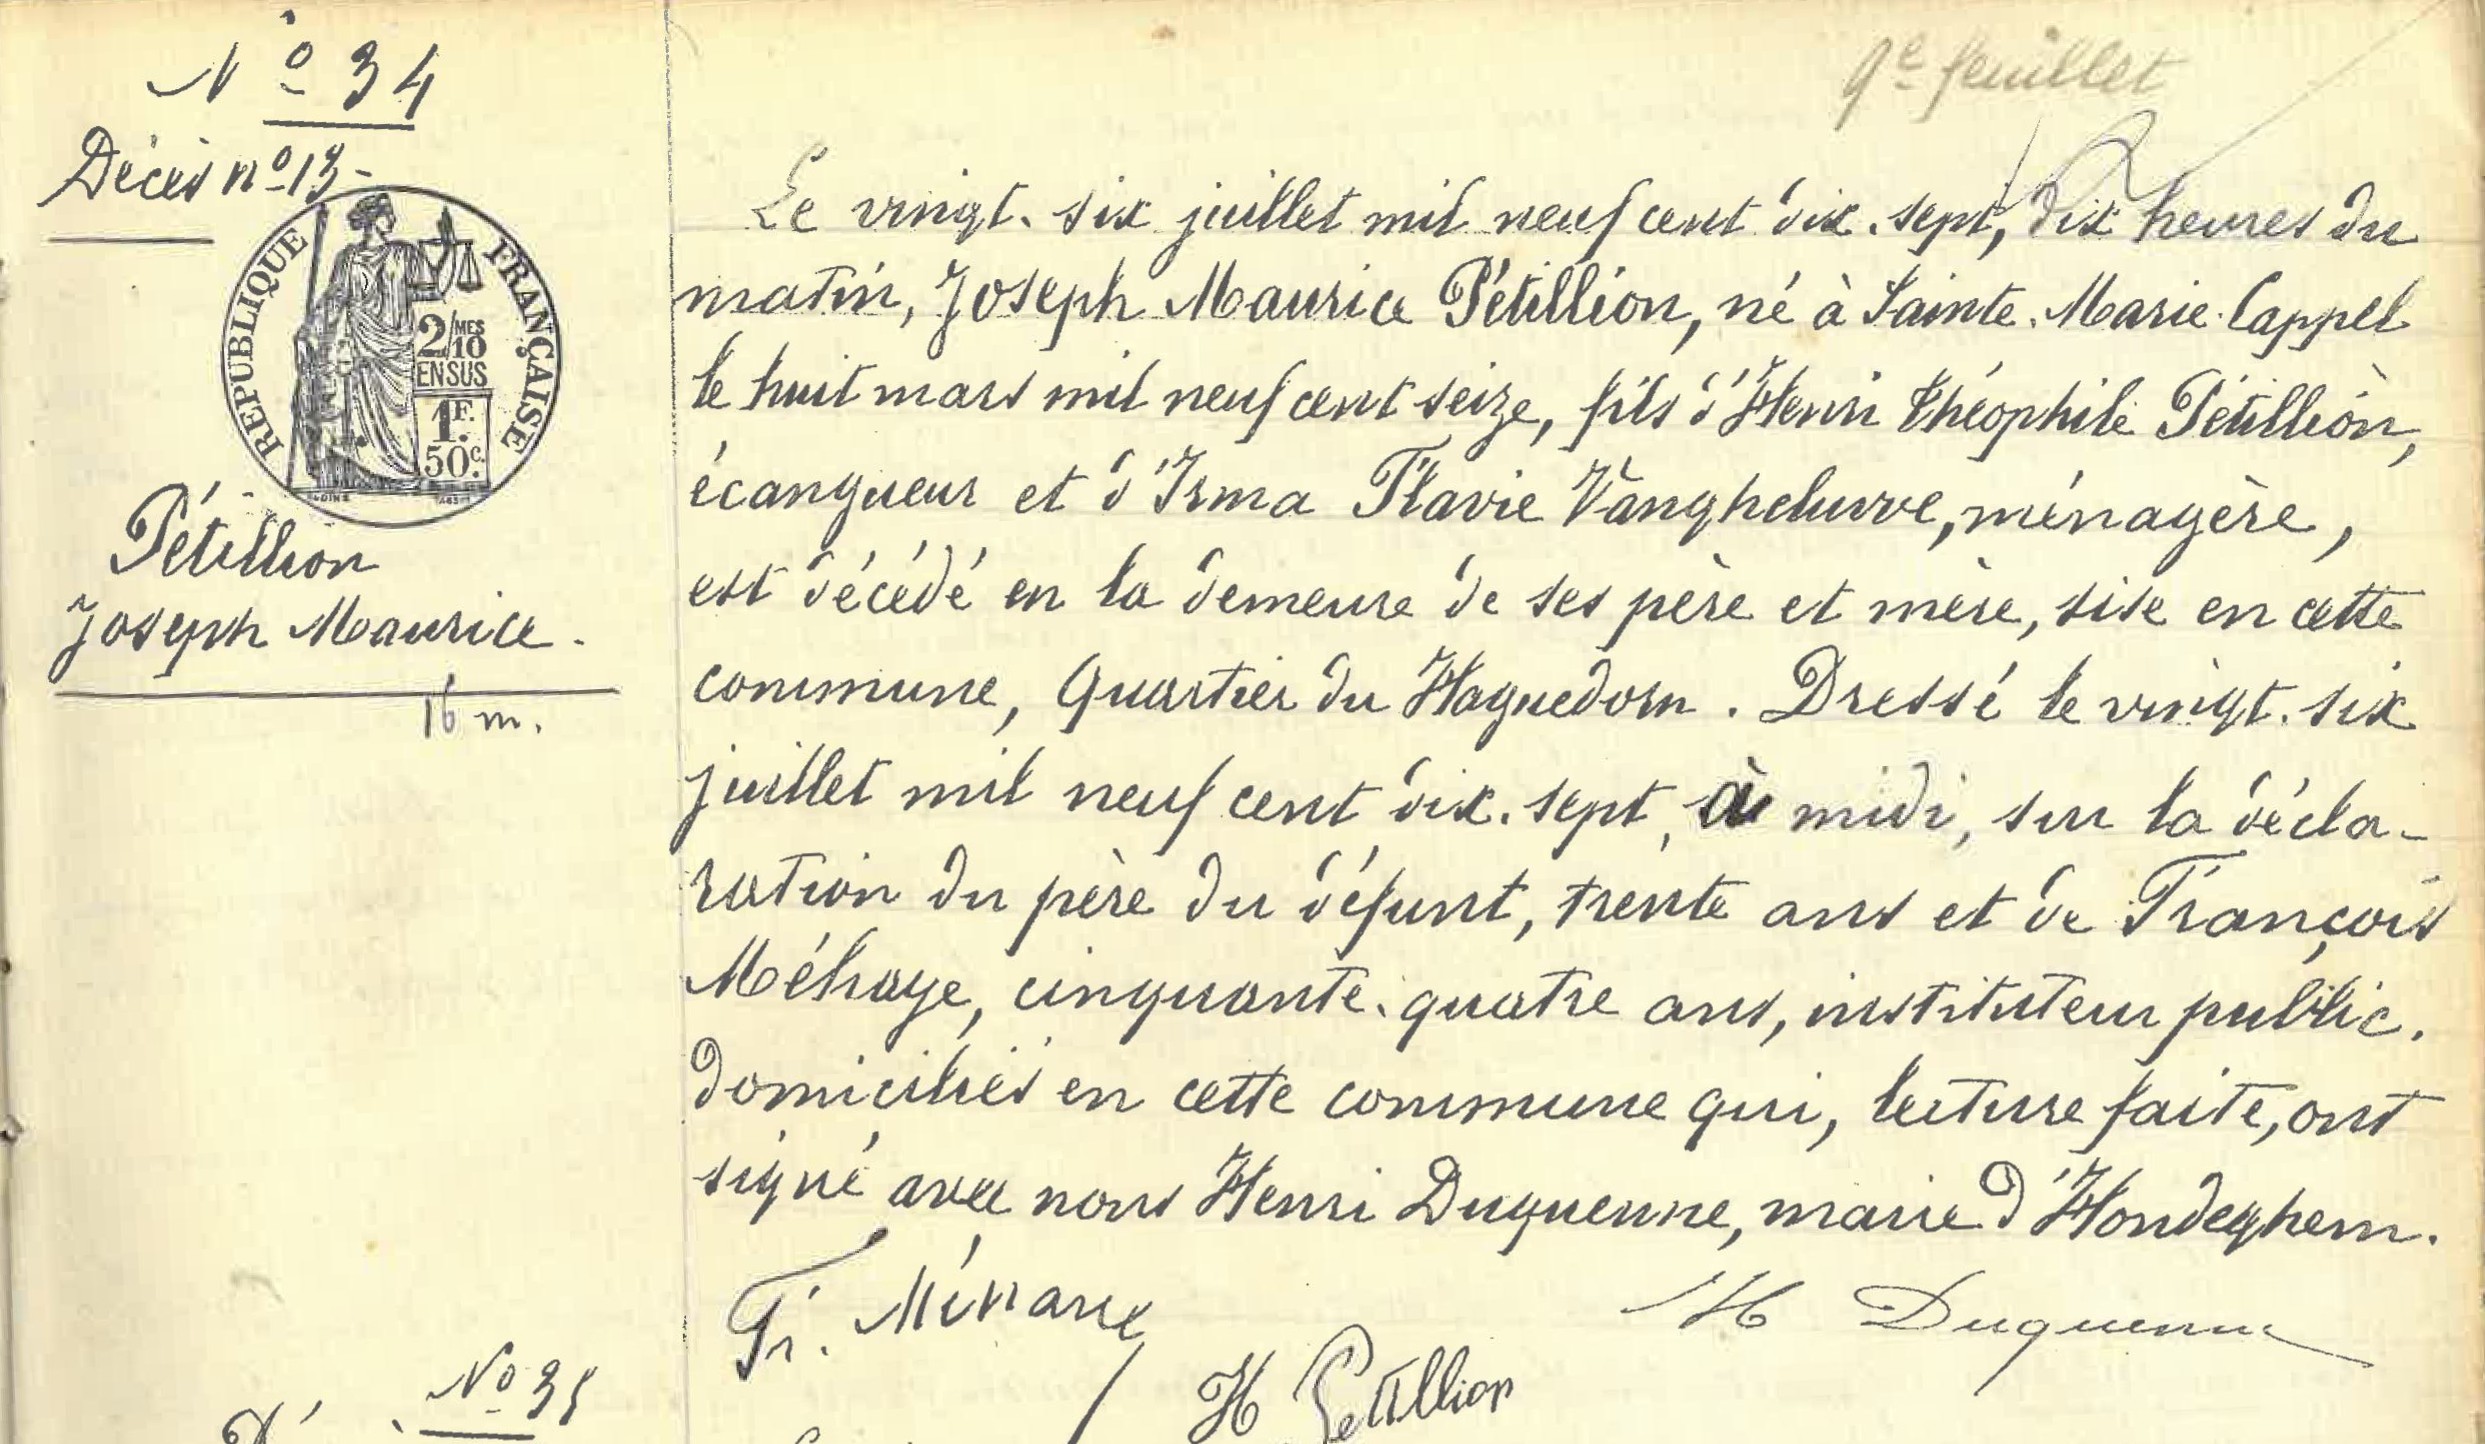 9e feuillet
N° 34
Décès n° 13-
REPUBLIQUE FRANÇAISE
2/10 MES
EN SUS
1F.
50c.
Pétillion
Joseph Maurice.
16 m.
Le vingt-six juillet mil neuf cent dix-sept, dix heures du
matin, Joseph Maurice Pétillion, né à Sainte-Marie-Cappel
le huit mars mil neuf cent seize, fils d'Henri Théophile Pétillion,
écangueur et d'Irma Flavie Vangheluwe, ménagère,
est décédé en la demeure de ses père et mère, sise en cette
commune, Quartier du Haguedorn. Dressé le vingt-six
juillet mil neuf cent dix-sept, à midi, sur la décla-
ration du père du défunt, trente ans et de François
Méhaye, cinquante-quatre ans, instituteur public.
domiciliés en cette commune qui, lecture faite, ont
signé avec nous Henri Duquenne, maire d'Hondeghem.
Fr. Méhaye
H Duquenne
H Petillion
N° 35